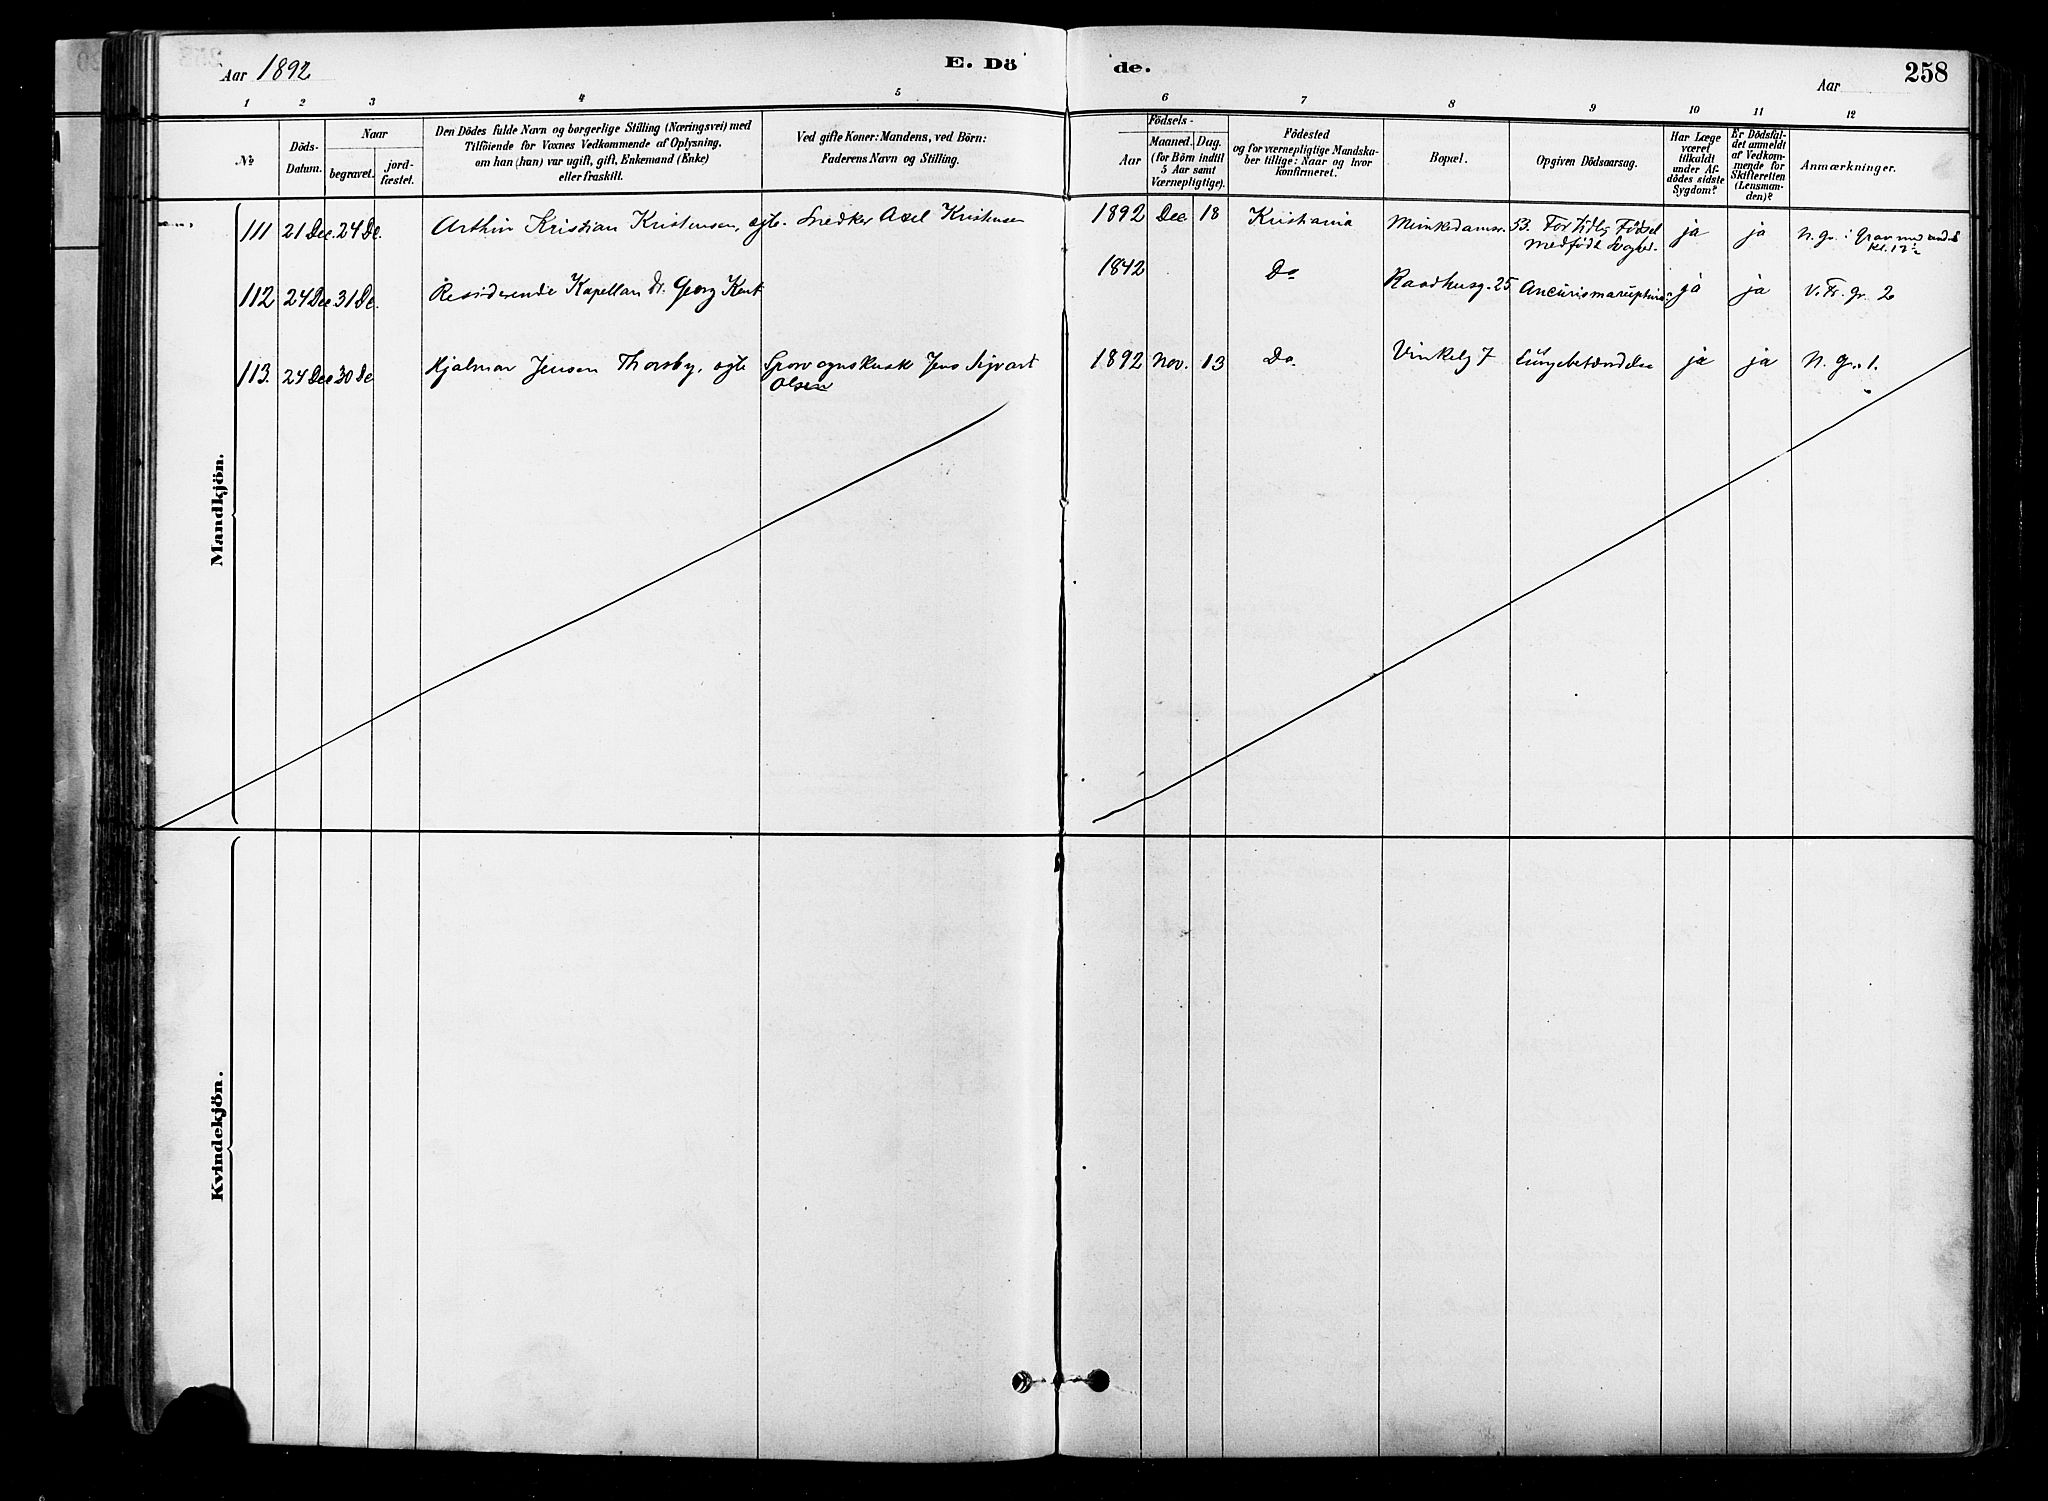 Aar 1892
E. Dö
de.
Aar
258
1 2 3 4 5 6 7 8 9 10 11 12
№
Döds-
Datum.
Naar
begravet.
jord-
fæstet.
Den Dödes fulde Navn og borgerlige Stilling (Næringsvei) med
Tilföiende for Voxnes Vedkommende af Oplysning,
om han (hun) var ugift, gift, Enkemand (Enke)
eller fraskilt.
Ved gifte Koner: Mandens, ved Börn:
Faderens Navn og Stilling.
Födsels-
Aar
Maaned.
Dag.
(for Börn indtil
5 Aar samt
Værnepligtige).
Födested
og for værnepligtige Mandska-
ber tillige: Naar og hvor
konfirmeret.
Bopæl.
Opgiven Dödsaarsag.
Har Læge
været
tilkaldt
under Af-
dödes sidste
Sygdom?
Er Dödsfal-
det anmeldt
af Vedkom-
mende for
Skifteretten
(Lensman-
den)?
Anmærkninger.
Mandkjön.
111 21 Dec. 24 De. Arthur Kristian Kristensen, egte. Snedker Axel Kristensen 1892 Dec 18 Kristiania Munkedamsv. 53. For tidlig Födsel ja ja N. Gr. i Grav med
medfödt
112 24 Dec 31 De. Residerende Kapellan Dr. Georg Kent 1842 Do Raadhusg. 25 ja ja V. Fr. gr. 2
113. 24 Dec 30 De Hjalmar Jensen Thorsby, egte Sporvognskusk Jens Sigvart 1892 Nov. 13 Do. Vinkelg 7 Lungebetændelse ja ja N. Gr. 1.
Olsen
Kvindekjön.